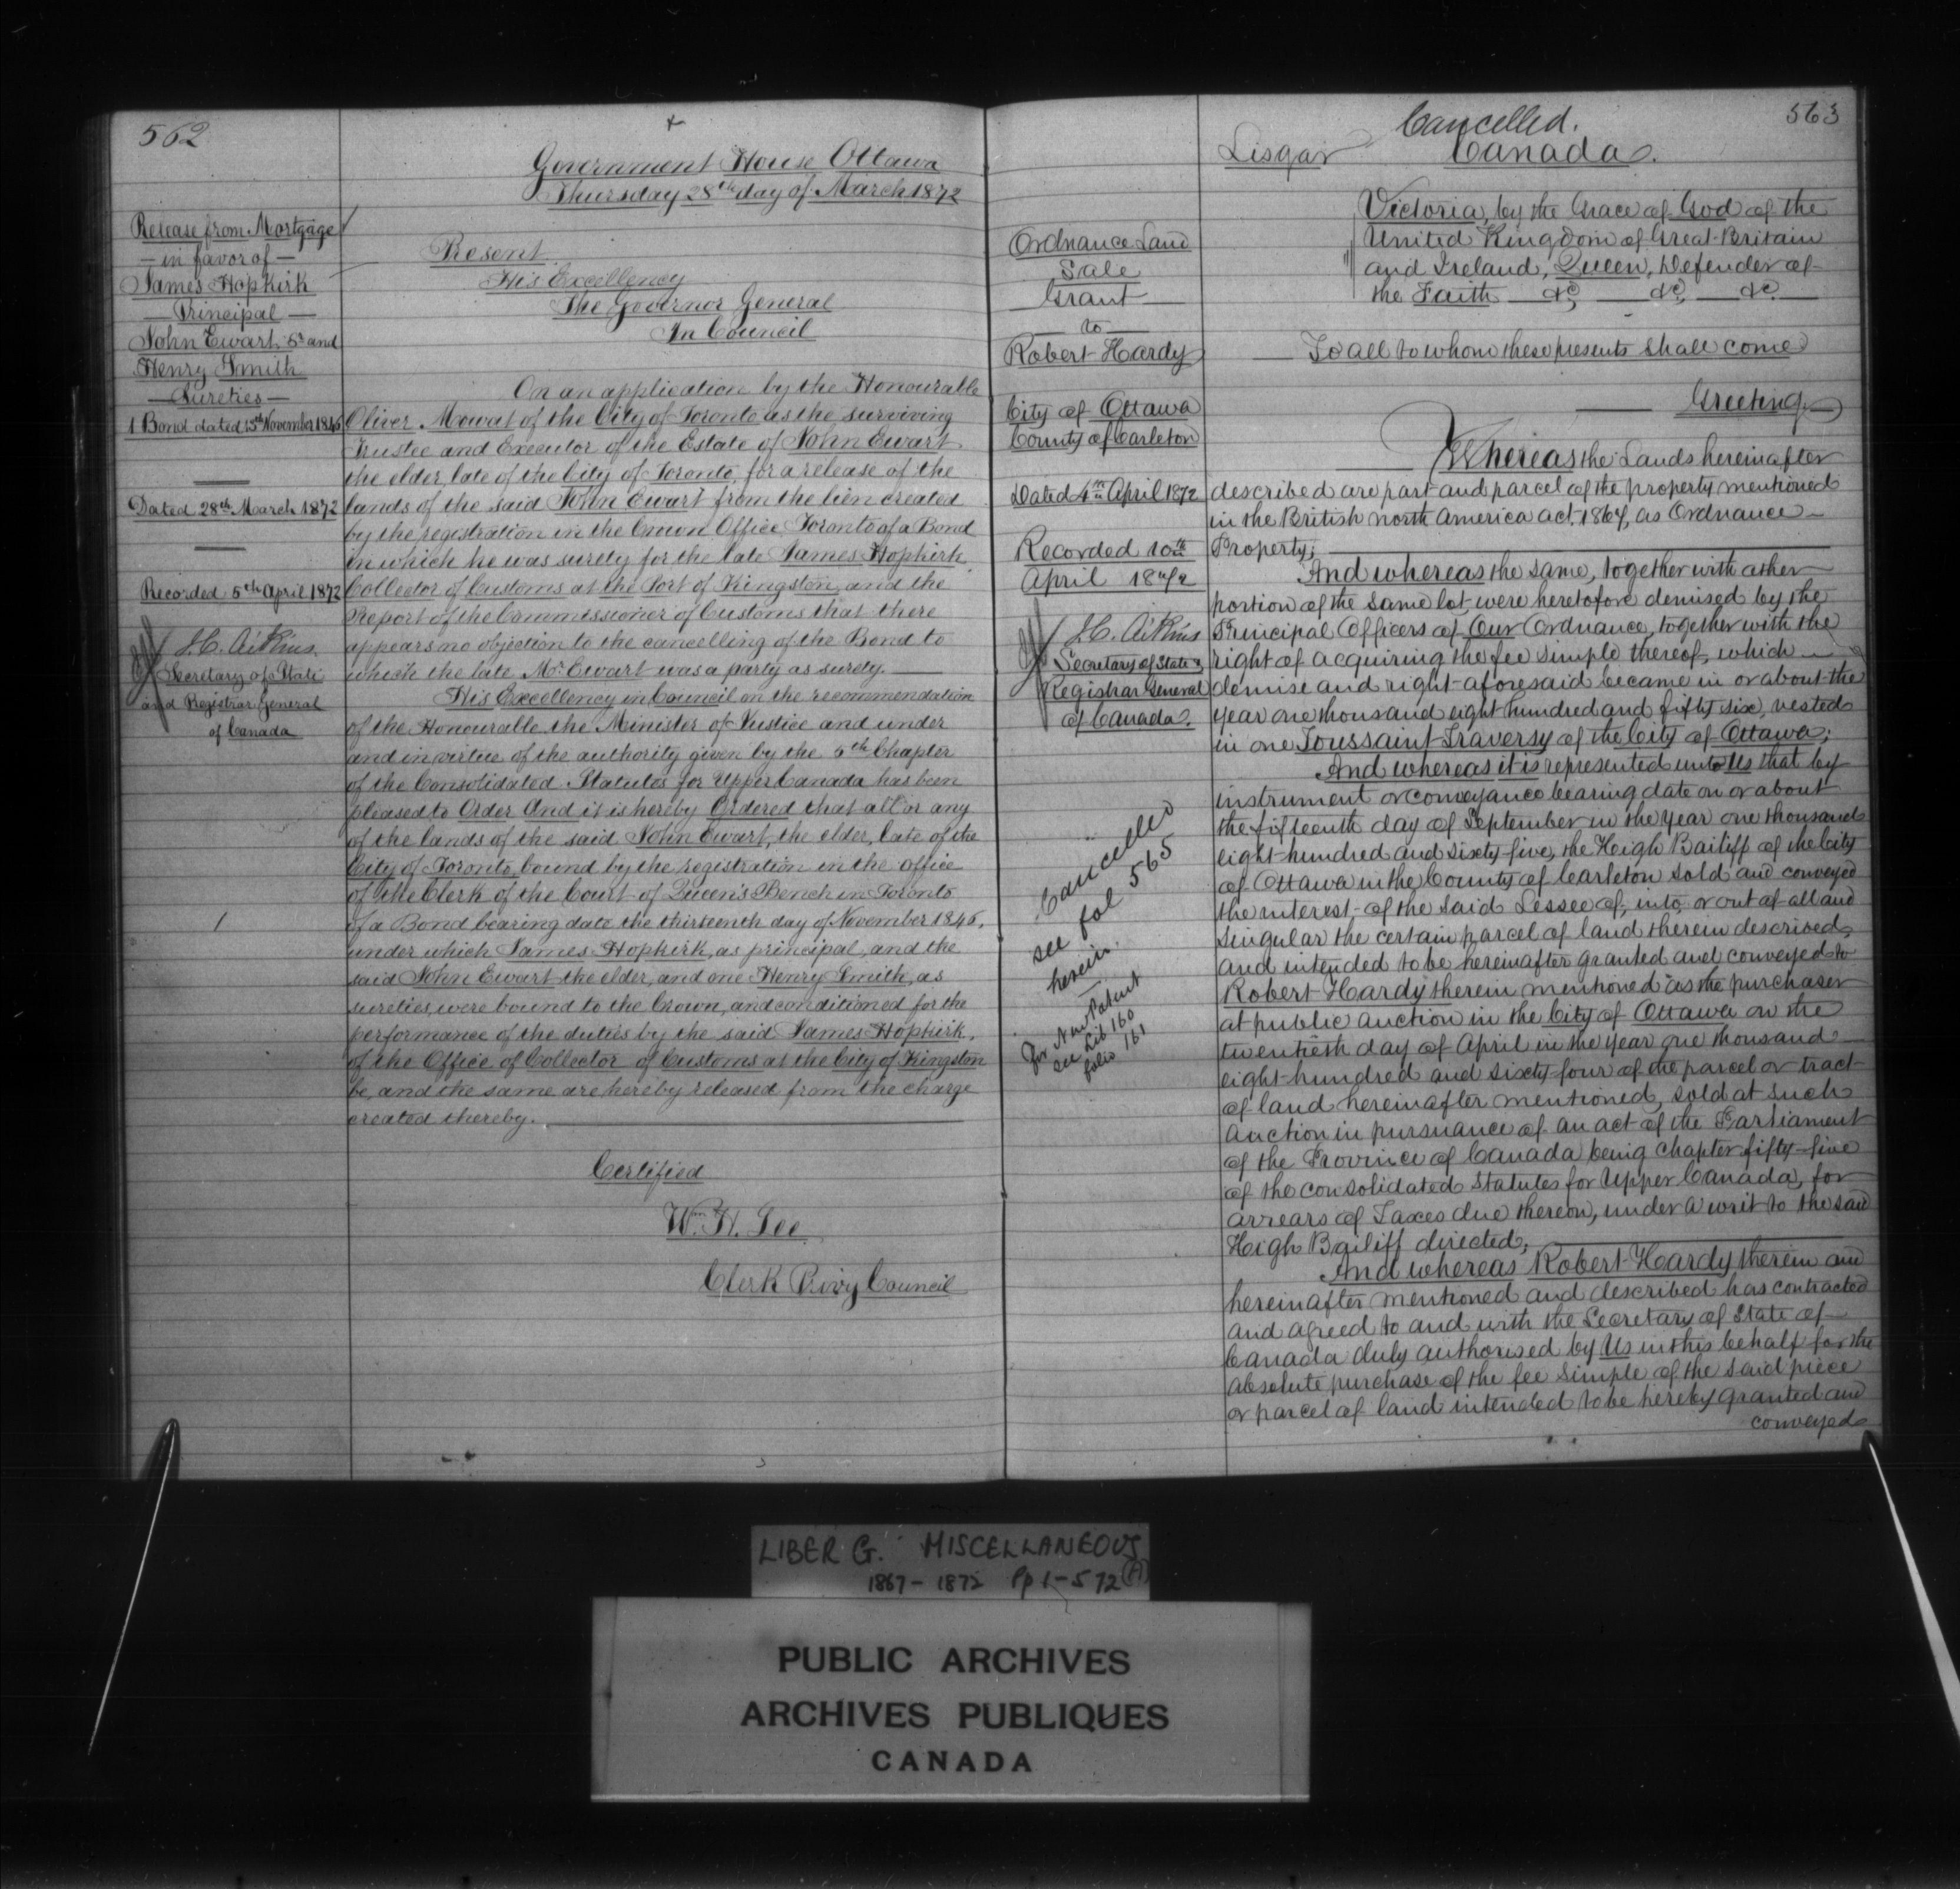 562
Government House Ottawa
Thursday 28th day of March 1872
Release from Mortgage
— in favor of —
James Hopkirk
— Principal —
John Ewart, Sr and
Henry Smith
— Sureties —
1 Bond dated 13th November 1846
Dated 28th March 1872
Recorded 5th April 1872
J.C. Aikins
Secretary of State
and Registrar General
of Canada
1
Present
His Excellency
The Governor General
In Council
On an application by the Honourable
Oliver Mowat of the City of Toronto as the surviving
Trustee and Executor of the Estate of John Ewart
the elder, late of the City of Toronto, for a release of the
lands of the said John Ewart from the lien created
by the registration in the Crown Office, Toronto of a Bond
in which he was surety for the late James Hopkirk,
Collector of Customs at the Port of Kingston, and the
Report of the Commissioner of Customs that there
appears no objection to the cancelling of the Bond to
which the late Mr Ewart was a party as surety.
His Excellency in Council on the recommendation
of the Honourable the Minister of Justice and under
and in virtue of the authority given by the 5th Chapter
of the Consolidated Statutes for Upper Canada has been
pleased to Order And it is hereby Ordered that all or any
of the lands of the said John Ewart, the elder, late of the
City of Toronto, bound by the registration in the office
of the Clerk of the Court of Queen's Bench in Toronto
of a Bond bearing date the thirteenth day of November 1846,
under which James Hopkirk, as principal, and the
said John Ewart the elder, and one Henry Smith, as
sureties, were bound to the Crown, and conditioned for the
performance of the duties by the said James Hopkirk,
of the Office of Collector of Customs at the City of Kingston
be, and the same are hereby released from the charge
created thereby.
Certified
Wm H. Lee
Clerk Privy Council
563
Cancelled.
Lisgar Canada.
Ordnance Land
Sale
Grant
— to —
Robert Hardy
City of Ottawa
County of Carleton
Dated 4th April 1872
Recorded 10th
April 1872
J.C. Aikins
Secretary of State &
Registrar General
of Canada.
Cancelled
see fol 565
herein.
For New Patent
see Lib 160
folio 161
Victoria, by the Grace of God of the
United Kingdom of Great Britain
and Ireland, Queen, Defender of
the Faith — &c, — &c, — &c. —
To all to whom these presents shall come
Greeting
Whereas the Lands hereinafter
described are part and parcel of the property mentioned
in the British North America act, 1867, as Ordnance
Property;
And whereas the same, together with other
portion of the same lot, were heretofore demised by the
Principal Officers of Our Ordnance, together with the
right of acquiring the fee simple thereof, which
demise and right aforesaid became in or about the
year one thousand eight hundred and fifty six, vested
in one Toussaint Traversy of the City of Ottawa;
And whereas it is represented unto Us that by
instrument or conveyance bearing date on or about
the fifteenth day of September in the year one thousand
eight hundred and sixty five, the High Bailiff of the City
of Ottawa in the County of Carleton sold and conveyed
the interest of the said Lessee of, into, or out of all and
singular the certain parcel of land therein described,
and intended to be hereinafter granted and conveyed to
Robert Hardy therein mentioned as the purchaser
at public auction in the City of Ottawa on the
twentieth day of April in the year one thousand
eight hundred and sixty four of the parcel or tract
of land hereinafter mentioned, sold at such
auction in pursuance of an act of the Parliament
of the Province of Canada being chapter fifty-five
of the consolidated statutes for Upper Canada, for
arrears of Taxes due thereon, under a writ to the said
High Bailiff directed;
And whereas Robert Hardy therein and
hereinafter mentioned and described has contracted
and agreed to and with the Secretary of State of
Canada duly authorised by Us in this behalf for the
absolute purchase of the fee simple of the said piece
or parcel of land intended to be hereby granted and
conveyed
LIBER G. MISCELLANEOUS
1867 - 1872 Pp 1-572 (A)
PUBLIC ARCHIVES
ARCHIVES PUBLIQUES
CANADA